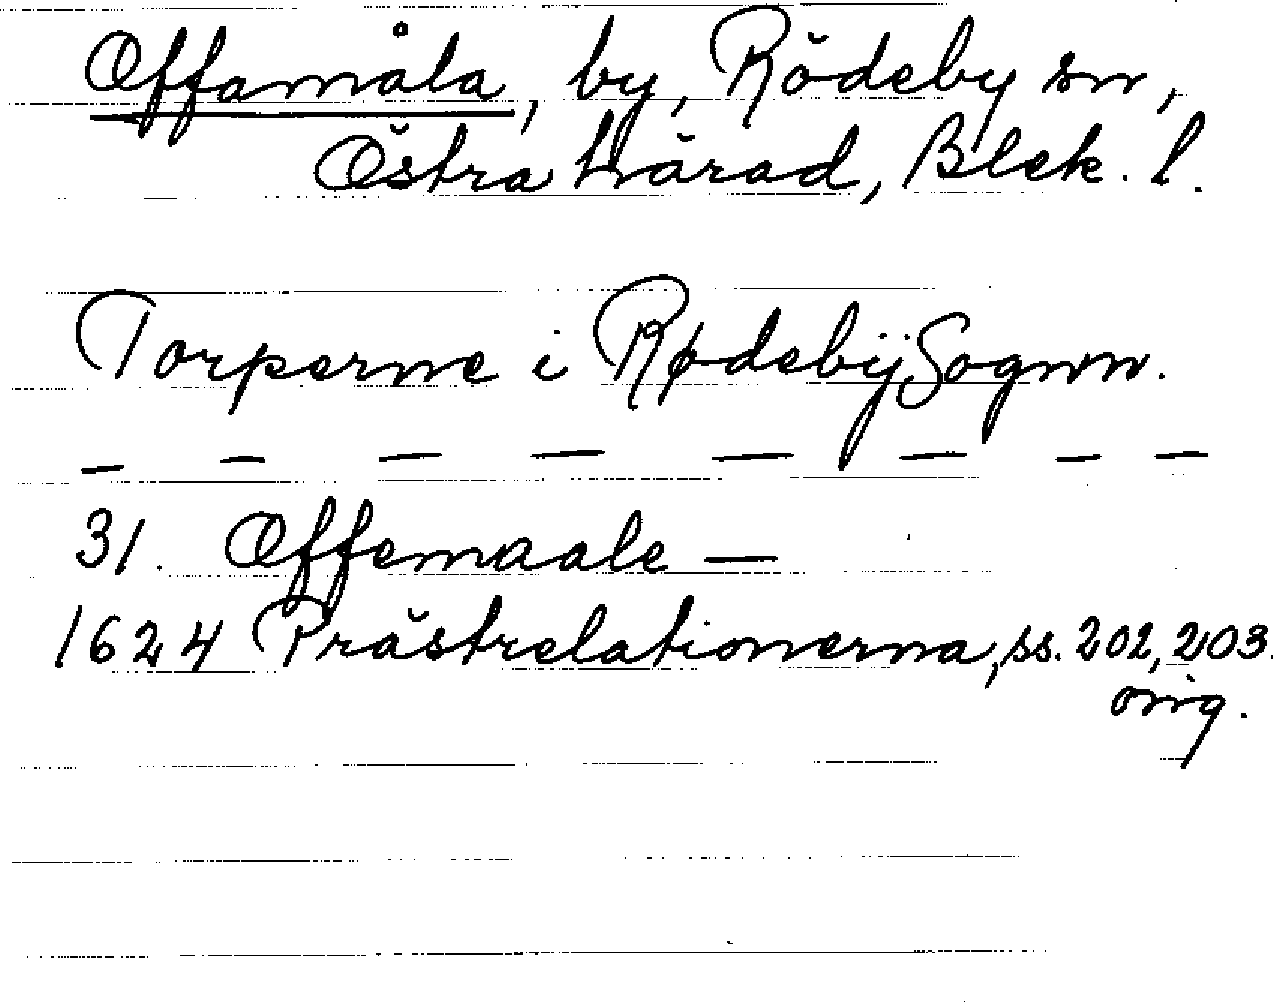 Offamåla, by, Rödeby sn,
Östra härad, Blek. l.
Torperne i Rødebÿ Sognn.
— — — — — — — —
31. Offemaale —
1624 Prästrelationerna, ss. 202, 203.
orig.